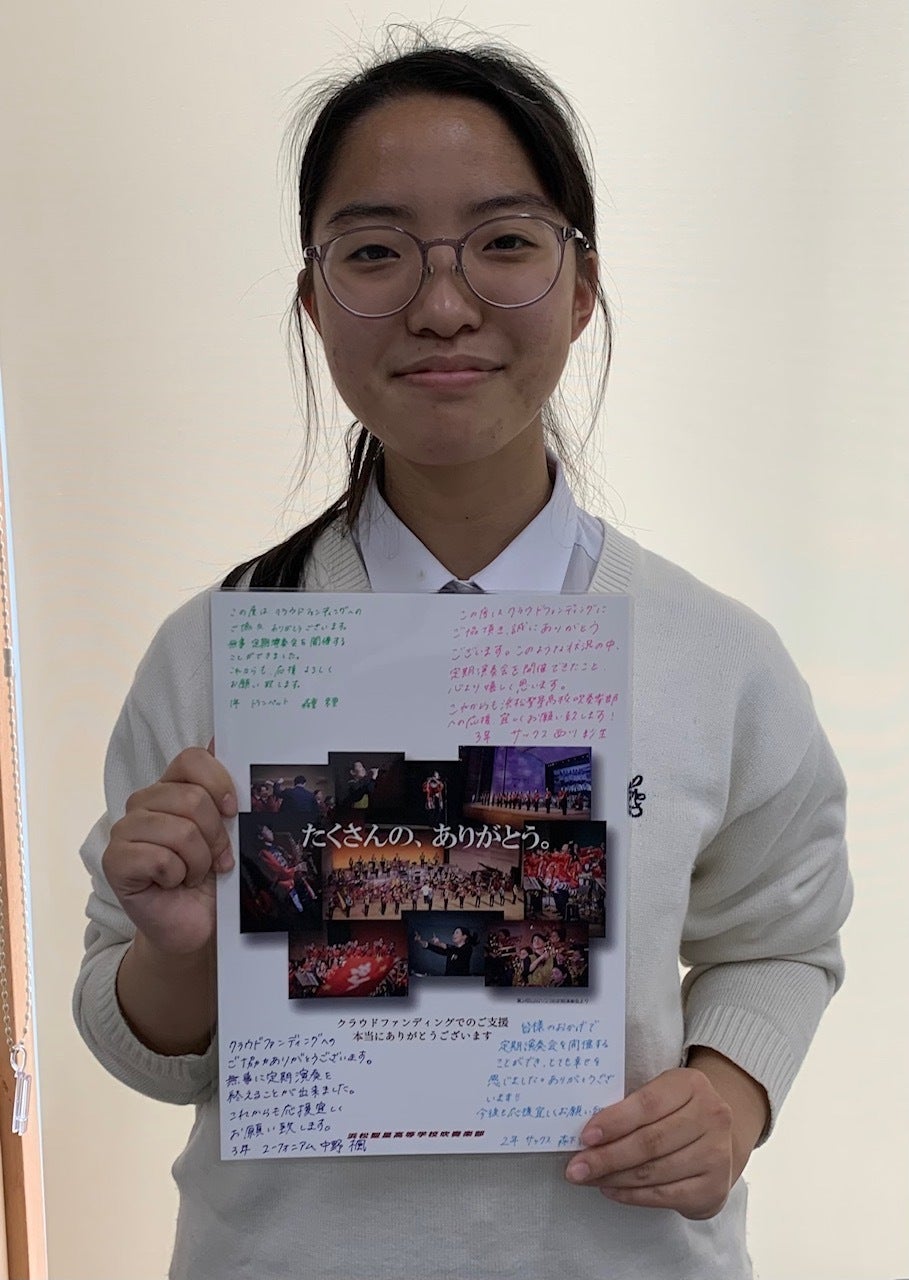 この度は クラウドファンディングへの
ご協力 ありがとうございます。
無事 定期演奏会を開催する
ことができました。
これからも 応援 よろしく
お願い致します。
1年 トランペット
この度はクラウドファンディングに
ご協力頂き、誠にありがとう
ございます。このような状況の中、
定期演奏会を開催できたこと、
心より嬉しく思います。
これからも浜松聖星高校吹奏楽部
への応援 宜しくお願い致します!
3年 サックス 西川
たくさんの、ありがとう。
クラウドファンディングでのご支援
本当にありがとうございます
クラウドファンディングへの
ご協力ありがとうございます。
無事に定期演奏を
終えることが出来ました。
これからも応援宜しく
お願い致します。
3年 ユーフォニアム 中野 楓
皆様のおかげで
定期演奏会を開催する
ことができ、とても幸せを
感じました。ありがとうござ
います!!
今後も応援宜しくお願い
2年 サックス
浜松聖星高等学校吹奏楽部